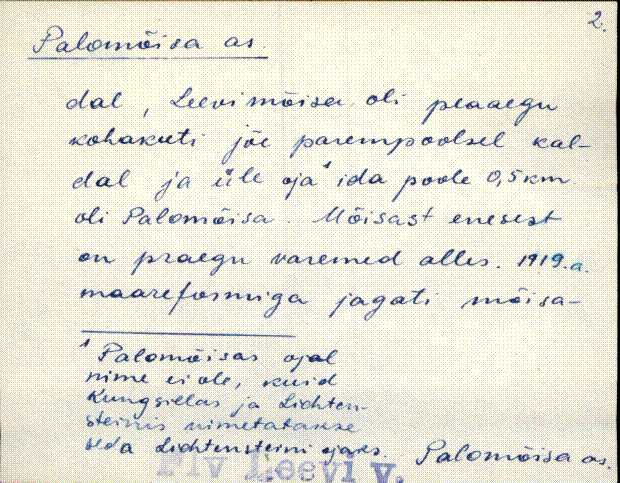 2.
Palomõisa as.
dal, Leevimõisa oli peaaegu
kohakuti jõe parempoolsel kal-
dal ja üle oja¹ ida poole 0,5 km
oli Palomõisa. Mõisast enesest
on praegu varemed alles. 1919.a.
maareformiga jagati mõisa-
¹ Palomõisas ojal
nime ei ole, kuid
Kungsillas ja Lichten-
steinis nimetatakse
seda Lichtensteini ojaks.
Palomõisa as.
Plv Leevi v.